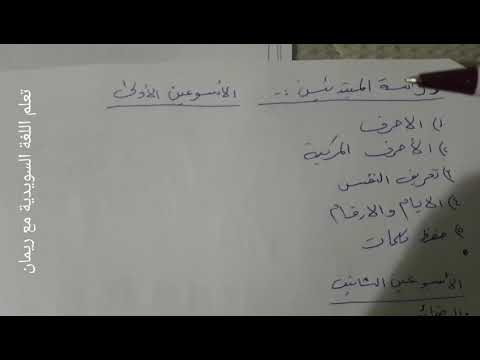 دراسة المبتدئين :- الأسبوعين الأولى
١) الاحرف
٢) الأحرف المركبة
٣) تعريف النفس
٤) الأيام والارقام
٥) حفظ كلمات
الأسبوعين الثانيه
الضمائر
تعلم اللغة السويدية مع ريمان